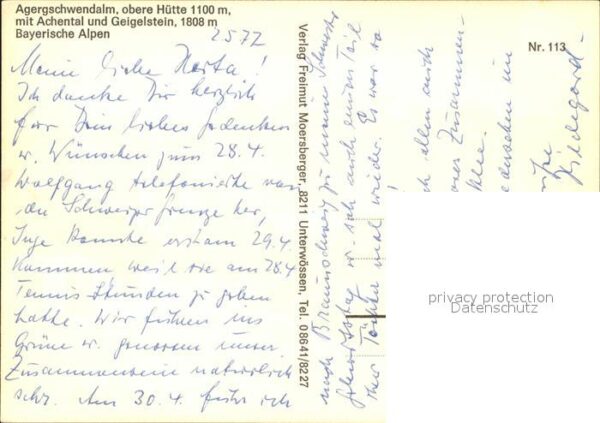 Agergschwendalm, obere Hütte 1100 m,
mit Achental und Geigelstein, 1808 m
Bayerische Alpen
2572
Nr. 113
Meine liebe Herta!
Ich danke Dir herzlich
für Dein liebes Gedenken
u. Wünschen zum 28.4.
Wolfgang telefonierte von
der Schweizer Grenze her,
Inge konnte erst am 29.4.
kommen weil sie am 28.4
Tennis Stunden zu geben
hatte. Wir fuhren ins
Grüne u. genossen unser
Zusammensein natürlich
sehr. Am 30.4. fuhr ich
nach Braunschweig zu meiner Schwester
Geburtstag u. sah auch einen Teil
ihrer Töchter mal wieder. Es war so
allen auch
Zusammen-
im
Hildegard
Verlag Freimut Moersberger, 8211 Unterwössen, Tel. 08641/8227
privacy protection
Datenschutz